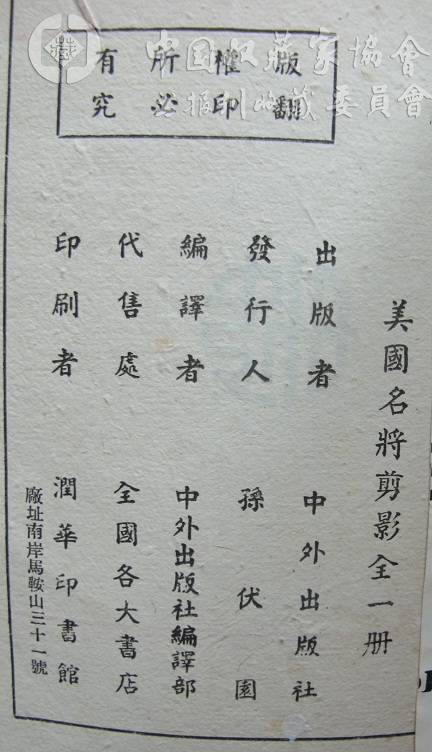 中国收藏家協會
报刊收藏委員會
版權所有
翻印必究
美國名將剪影全一册
出版者 中外出版社
發行人 孫伏園
編譯者 中外出版社編譯部
代售處 全國各大書店
印刷者 潤華印書館
廠址南岸馬鞍山三十一號